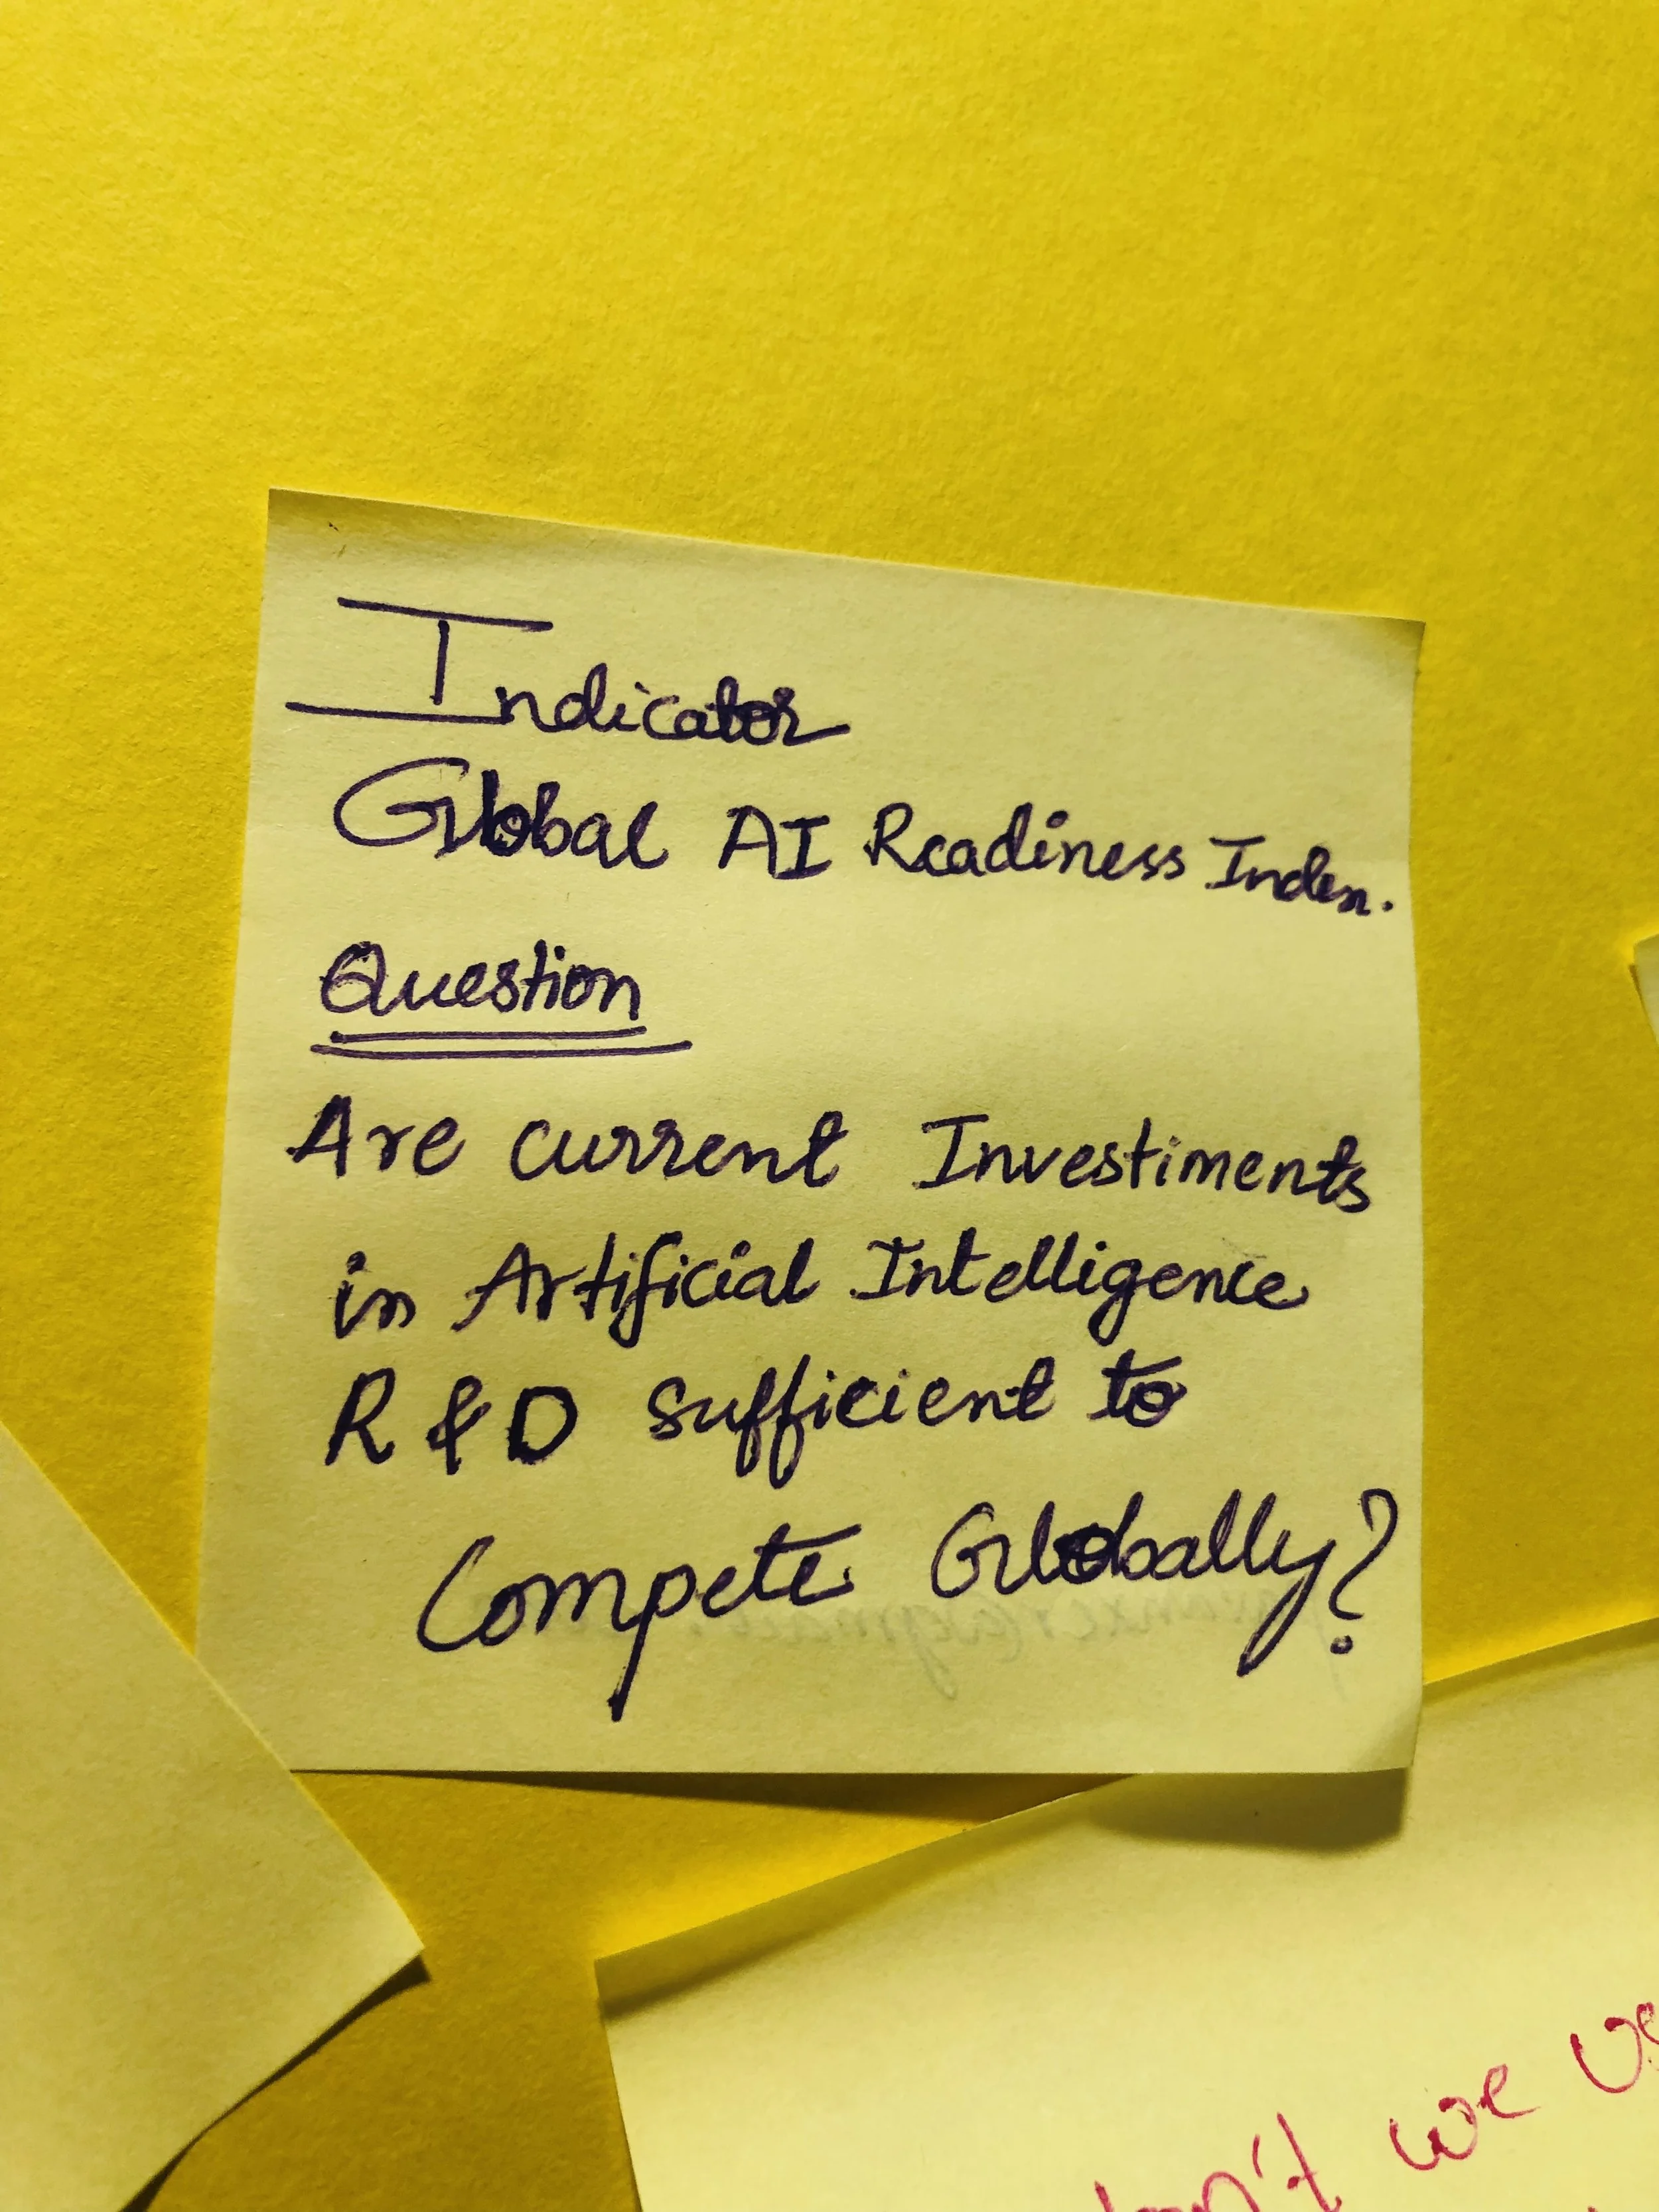 Indicator
Global AI Readiness Index.
Question
Are current Investiments
in Artificial Intelligence
R & D sufficient to
Compete Globally?
we